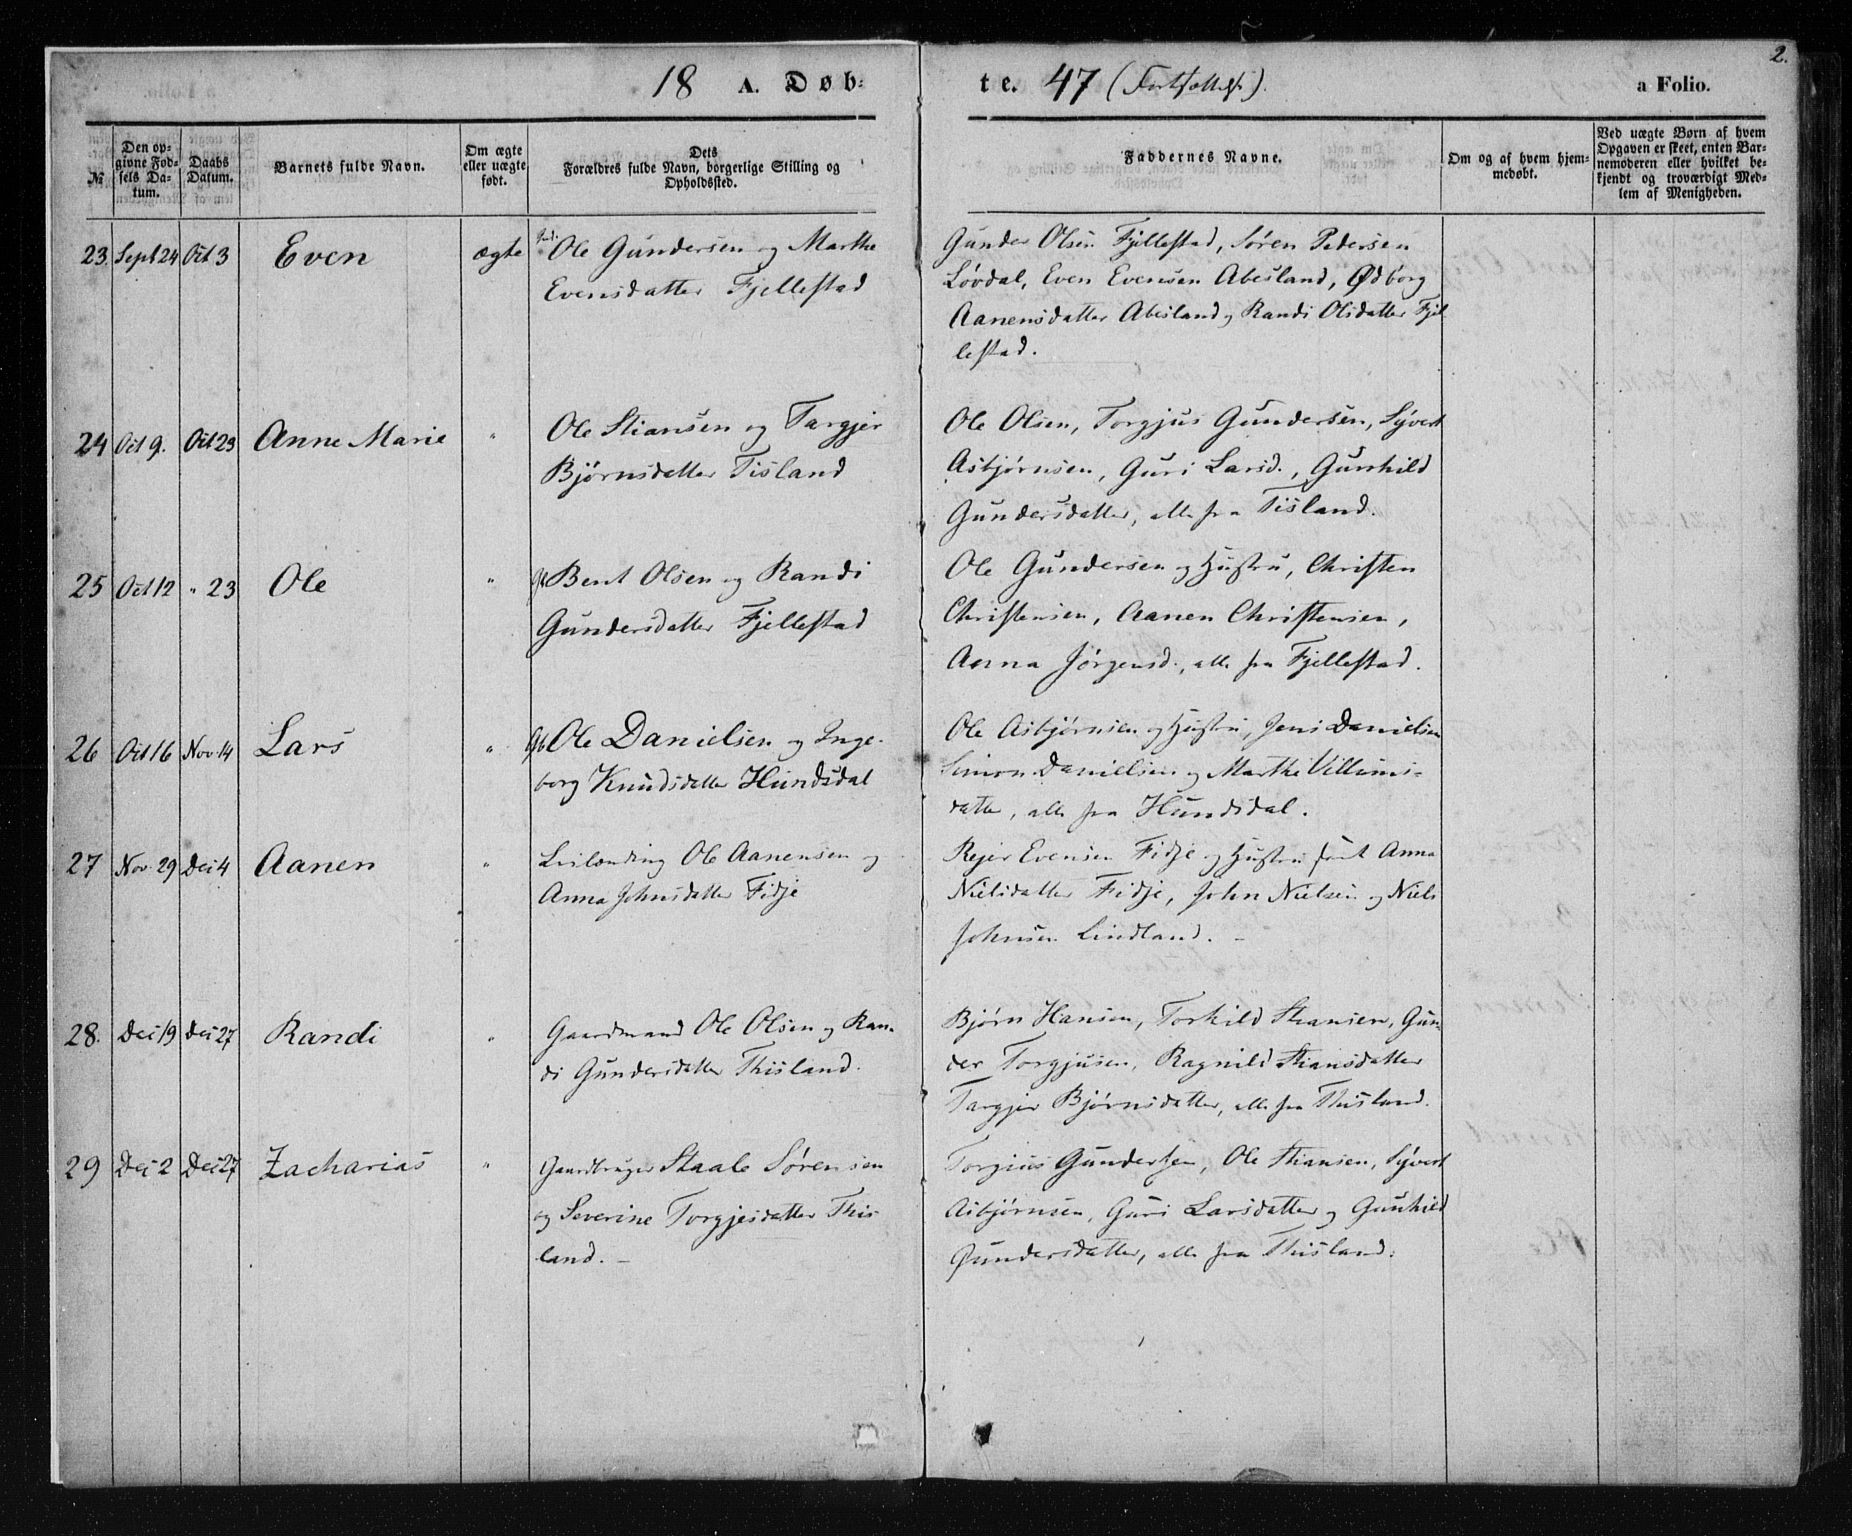 2.
18 A. Døb-
te. 47 (Fortsættelse).
a Folio.
№
Den op-
givne Fød-
sels Da-
tum.
Daabs
Datum.
Barnets fulde Navn.
Om ægte
eller uægte
født.
Dets
Forældres fulde Navn, borgerlige Stilling og
Opholdssted.
Faddernes Navne.
Om og af hvem hjem-
medøbt.
Ved uægte Børn af hvem
Opgaven er skeet, enten Bar-
nemoderen eller hvilket be-
kjendt og troværdigt Med-
lem af Menigheden.
23. Sept 24 Oct 3 Even ægte Ole Gundersen og Marthe
Evensdatter Fjellestad
Gunder Olsen Fjellestad, Søren Pedersen
Løvdal, Even Evensen Abesland, Ødborg
Aanensdatter Abesland og Randi Olsdatter Fjel
lestad.
24 Oct 9. Oct 23 Anne Marie " Ole Stiansen og Targjer
Bjørnsdatter Tisland
Ole Olsen, Torgjus Gundersen, Syvert
Asbjørnsen, Guri Larsd., Gunhild
Gundersdatter, alle fra Tisland.
25 Oct 12 " 23 Ole " Gb Bent Olsen og Randi
Gundersdatter Fjellestad
Ole Gundersen og Hustru, Christen
Christensen, Aanen Christensen,
Anna Jørgensd., alle fra Fjellestad.
26 Oct 16 Nov 14 Lars " Gb Ole Danielsen og Inge-
borg Knudsdatter Hundsdal
Ole Asbjørnsen og Hustru, Jens Danielsen
Simon Danielsen og Marthe Villums-
datter, alle fra Hundsdal.
27 Nov. 29 Dec 4 Aanen " Leilænding Ole Aanensen og
Anna Johnsdatter Fidje
Rejer Evensen Fidje og Hustru samt Anna
Nielsdatter Fidje, John Nielsen og Niels
Johnsen Lindland. -
28. Dec 19 Dec 27 Randi " Gaardmand Ole Olsen og Ran-
di Gundersdatter Thisland.
Bjørn Hansen, Torkild Stiansen, Gun
der Torgjusen, Ragnild Stiansdatter
Targjer Bjørnsdatter, alle fra Thisland.
29 Dec 2 Dec 27 Zacharias " Gaardbruger Staale Sørensen
og Severine Torgjesdatter This
land. -
Torgius Gundersen, Ole Stiansen, Syvert
Asbjørnsen, Guri Larsdatter og Gunhild
Gundersdatter, alle fra Thisland.